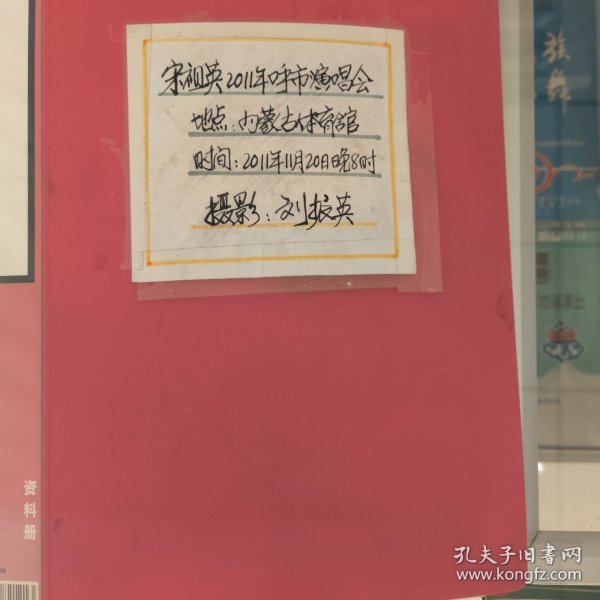 宋祖英2011年呼市演唱会
地点：内蒙古体育馆
时间：2011年11月20日晚8时
摄影：刘振英
资料册
族舞
演出
孔夫子旧书网
www.kongfz.com